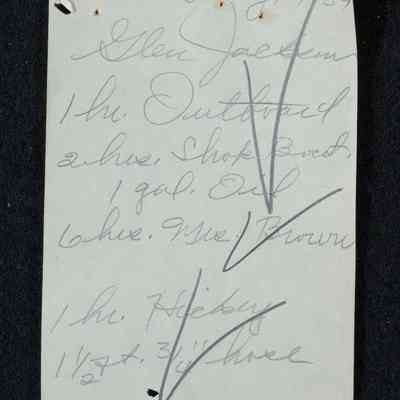 Glen Jackson
1 hr. Outboard
2 hrs. Shop Boat.
1 gal. Oil
6 hrs. Mrs. Brown
1 hr. Hickey
1 1/2 ft. 3/4" hose